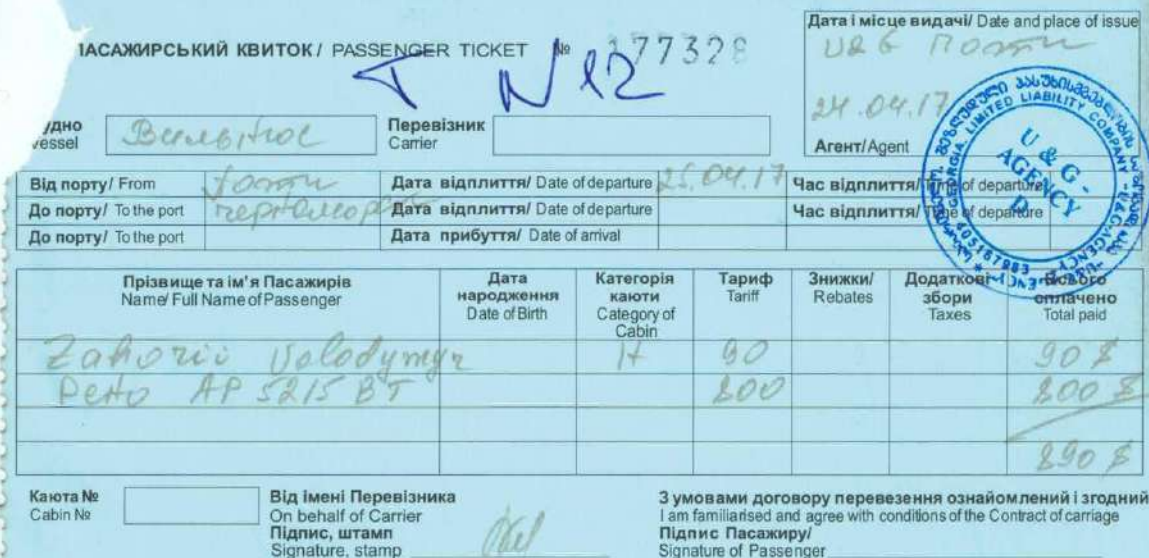 ПАСАЖИРСЬКИЙ КВИТОК / PASSENGER TICKET № 177328
N 12
Дата і місце видачі/ Date and place of issue
U&G Поти
24.04.17
Агент/Agent
GEORGIA, LIMITED LIABILITY COMPANY
U & G -
AGENCY
удно
vessel
Вильнюс
Перевізник
Carrier
Від порту/ From Поти Дата відплиття/ Date of departure 25.04.17 Час відплиття/ Time of departure
До порту/ To the port Дата відплиття/ Date of departure Час відплиття/ Time of departure
До порту/ To the port Дата прибуття/ Date of arrival
Прізвище та ім'я Пасажирів
Name/ Full Name of Passenger
Дата народження
Date of Birth
Категорія каюти
Category of Cabin
Тариф
Tariff
Знижки/
Rebates
Додаткові збори
Taxes
Всього сплачено
Total paid
Zahorii Volodymyr 90 90 $
Рено АР 5215 ВТ 800 800 $
890 $
Каюта №
Cabin №
Від імені Перевізника
On behalf of Carrier
Підпис, штамп
Signature, stamp
З умовами договору перевезення ознайомлений і згодний
I am familiarised and agree with conditions of the Contract of carriage
Підпис Пасажиру/
Signature of Passenger